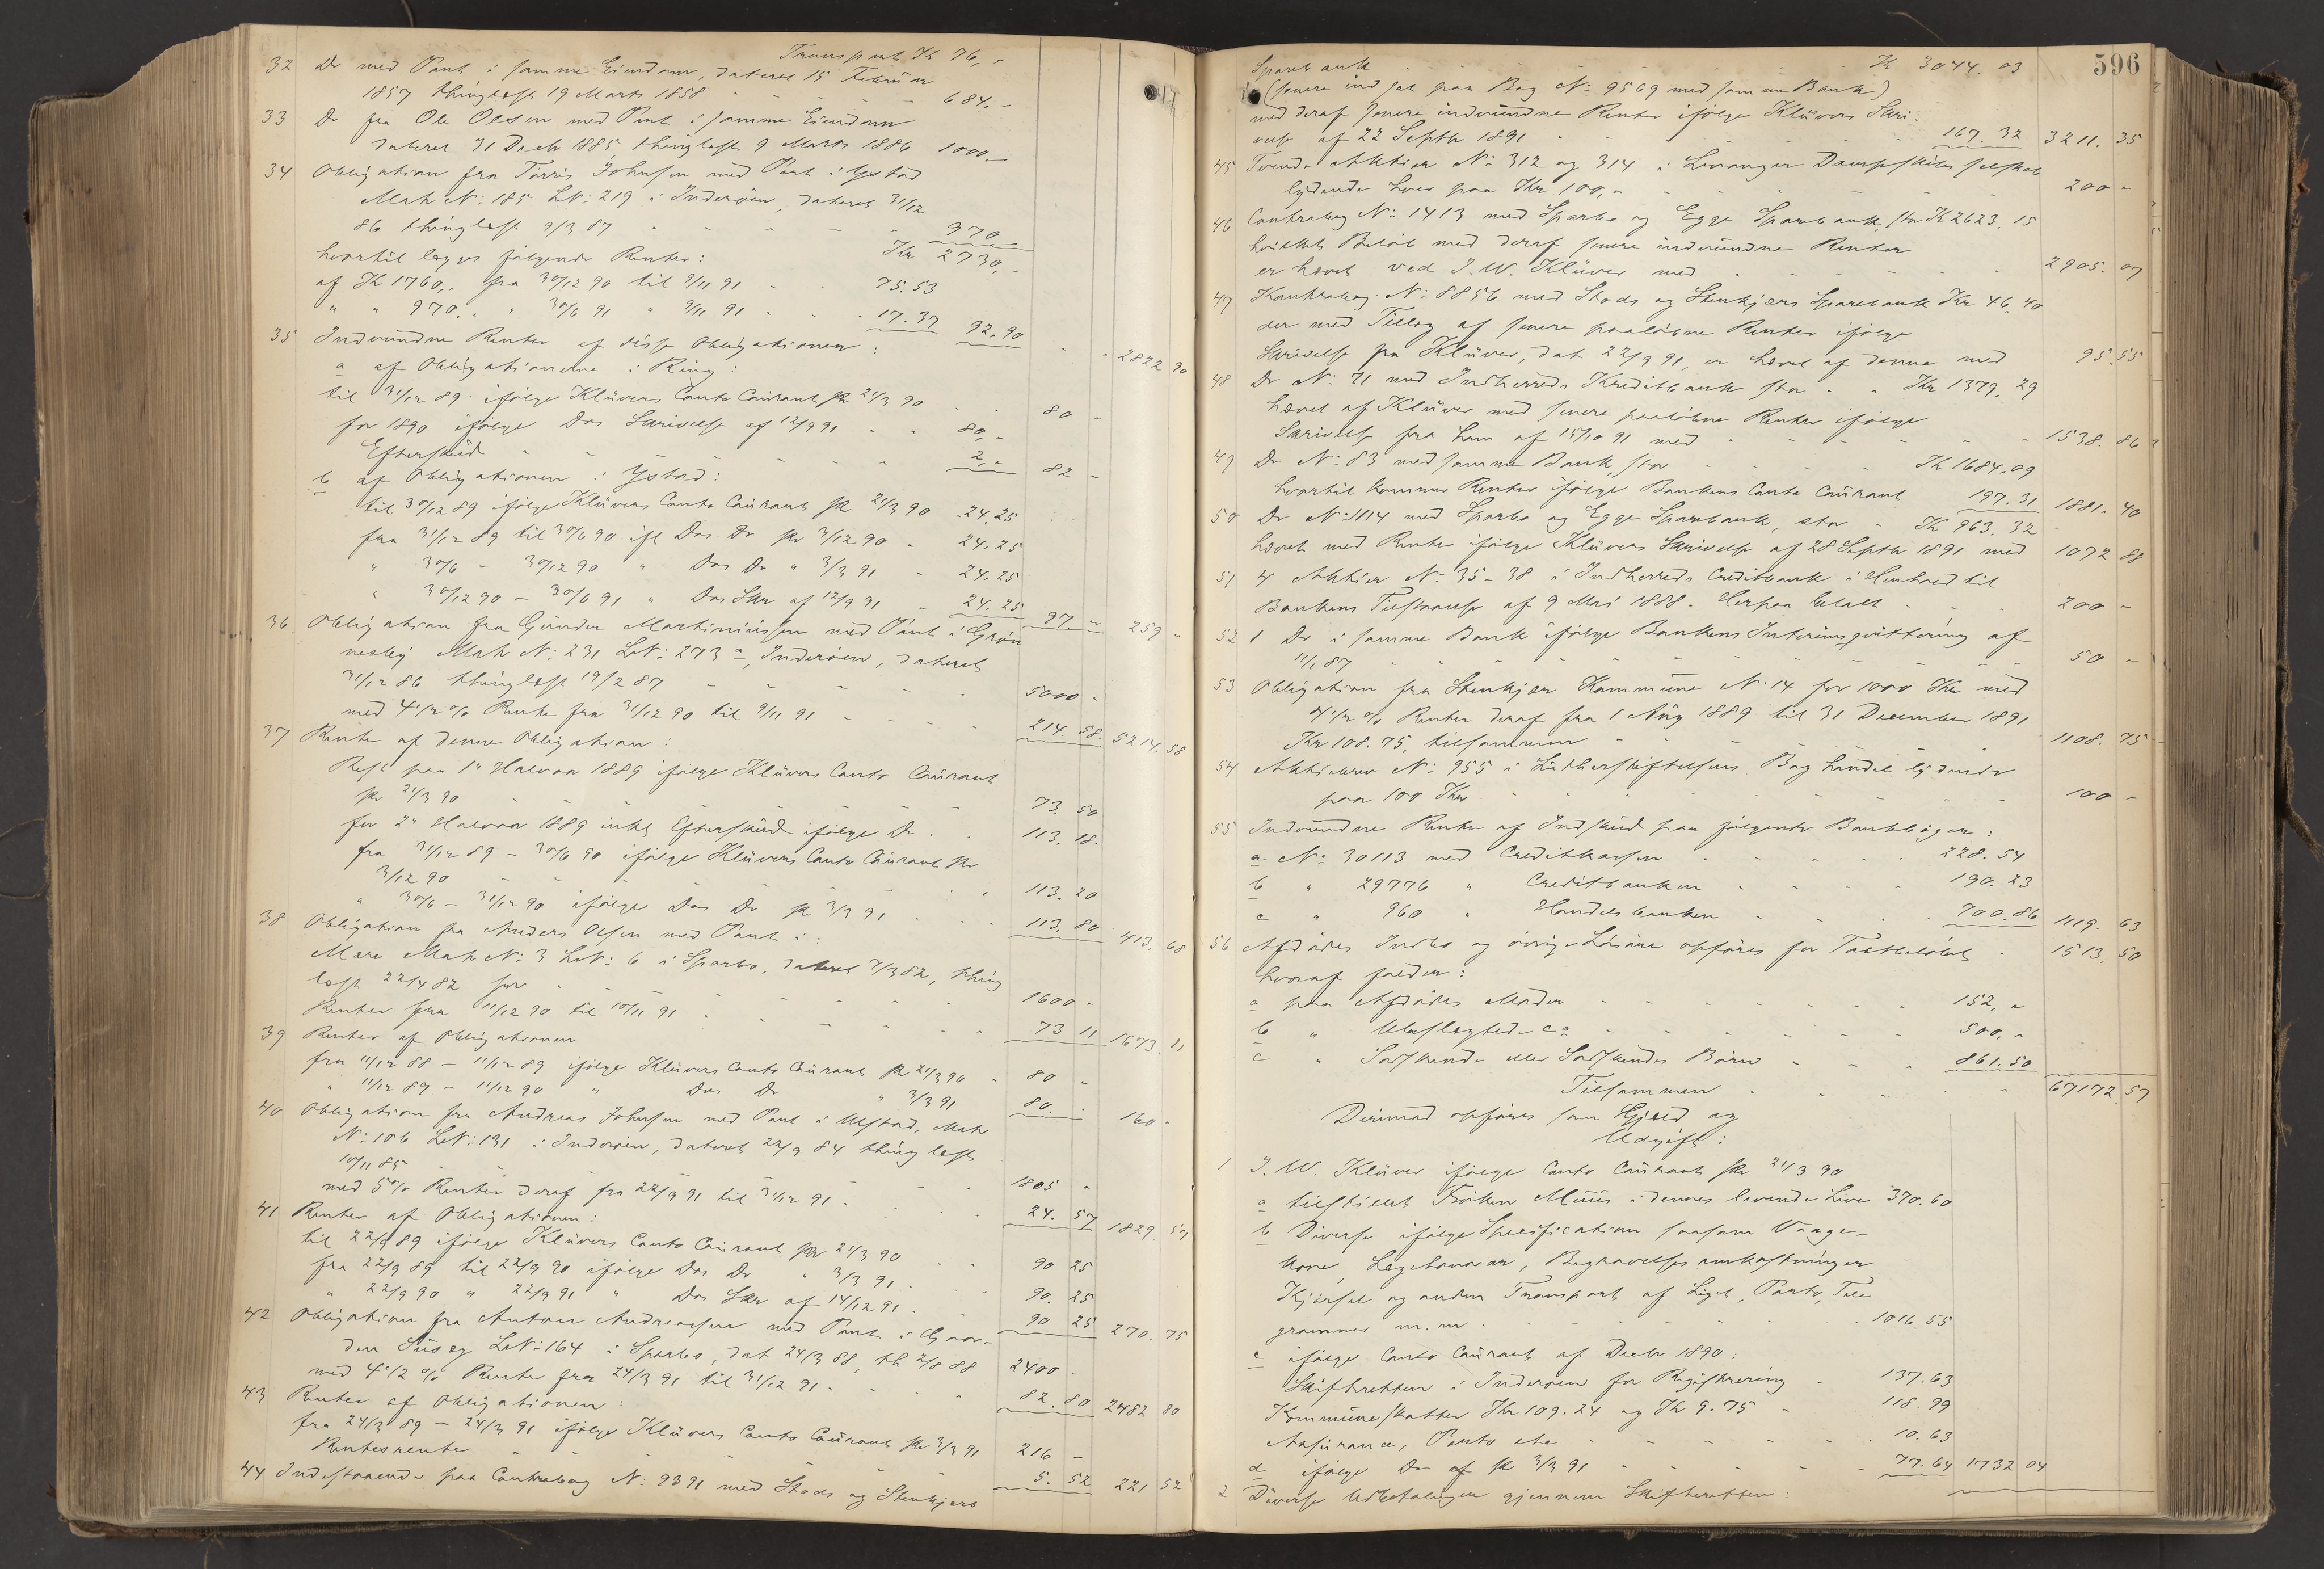 Transport Kr 76,-
32 Do med Pant i samme Eiendom, dateret 15 Februar
1857 thinglæst 19 Marts 1858 - - - - 684.-
33 Do fra Ole Olsen med Pant i samme Eiendom
dateret 31 Decbr 1885 thinglæst 9 Marts 1886 1000.-
34 Obligation fra Tørris Johnsen med Pant i Ystad
Matr N: 185 LN: 219 i Inderøen, dateret 31/12
86 thinglæst 9/3 87 - - - - - 970
hvortil lægges følgende Renter: Kr 2730,-
af Kr 1760,. fra 30/12 90 til 9/11 91 - - 75.53
" " 970. . " 30/6 91 " 9/11 91 - - - 17.37 92.90 - - 2822 90
35 Indvundne Renter af disse Obligationer:
a af Obligationerne i Ring:
til 31/12 89 ifølge Klüvers Conto Courant pr 21/3 90 - - 80 -
for 1890 ifølge Dos Skrivelse af 12/9 91 - - 80,-
Efterskud - - - - - - - 2,- 82 -
b af Obligationen i Ystad:
til 30/12 89 ifølge Klüvers Conto Courant pr 21/3 90 24.25
fra 31/12 89 til 30/6 90 ifl Dos Do pr 3/12 90 - 24.25
" 30/6 - 30/12 90 " Dos Do " 3/3 91 - 24.25
" 30/12 90 - 30/6 91 " Dos Skr af 12/9 91 - 24.25 97. - 259 -
36 Obligation fra Gunder Martiniussen med Pant i Grøn
nesby Matr N: 231 LN: 273 a, Inderøen, dateret
31/12 86 thinglæst 19/2 87 - - - - - 5000 -
med 4 1/2 % Rente fra 31/12 90 til 9/11 91 - - - - 214. 58. 5214. 58
37 Renter af denne Obligation:
Rest paa 1ste Halvaar 1889 ifølge Klüvers Conto Courant
pr 21/3 90 - - - - - - 73. 50
for 2det Halvaar 1889 inkl Efterskud ifølge Do - - 113. 18.
fra 31/12 89 - 30/6 90 ifølge Klüvers Conto Courant pr
3/12 90 - - - - - - - 113. 20
" 30/6 - 31/12 90 ifølge Dos Do pr 3/3 91 - - - 113. 80 413. 68
38 Obligation fra Anders Olsen med Pant i:
Mære Matr N: 3 LN: 6 i Sparbo, dateret 7/3 82, thing
læst 22/4 82 for - - - - - - 1600 -
Renter fra 11/12 90 til 10/11 91 - - - - - 73 11 1673. 11
39 Renter af Obligationen
fra 11/12 88 - 11/12 89 ifølge Klüvers Conto Courant pr 21/3 90 - 80 -
" 11/12 89 - 11/12 90 " Dos Do " 3/3 91 80. - 160 -
40 Obligation fra Andreas Johnsen med Pant i Ulstad, Matr
N: 106 LN: 131 i Inderøen, dateret 22/9 84 thinglæst
10/11 85 - - - - - - - 1805 -
med 5 % Renter deraf fra 22/9 91 til 31/12 91 - - - - 24. 57 1829. 57
41 Renter af Obligationen:
til 22/9 89 ifølge Klüvers Conto Courant pr 21/3 90 - - 90 25
fra 22/9 89 til 22/9 90 ifølge Dos Do " 3/3 91 - - - 90. 25
" 22/9 90 " 22/9 91 " Dos Skr af 14/12 91 - - 90 25 270. 75
42 Obligation fra Anton Andreassen med Pant i
LN: 164 i Sparbo, dat 24/3 88, thl 2/8 88 2400 -
med 4 1/2 % Rente fra 24/3 91 til 31/12 91 - - - - 82. 80 2482 80
43 Renter af Obligationen:
fra 24/3 89 - 24/3 91 ifølge Klüvers Conto Courant pr 3/3 91 216 -
Rentesrente - - - - - - - 5. 52 221 52
44 Indestaaende paa Contrabog N: 9391 med Stods og Stenkjærs
596
Sparebank - - - - - - Kr 3044. 03
(senere indsat paa Bog No 9569 med samme Bank)
med deraf senere indvundne Renter ifølge Klüvers Skri-
velse af 22 Septbr 1891 - - - - 167. 32 3211. 35
45 Tvende Aktier N: 312 og 314 i Levanger Dampskibsselskab
lydende hver paa Kr 100,- - - - - - 200 -
46 Contrabog N: 1413 med Sparbo og Egge Sparebank, stor Kr 2623. 15
hvilket Beløb med deraf senere indvundne Renter
er hævet ved J. W. Klüver med - - - - - 2905. 07
47 Kontrabog N: 8856 med Stods og Stenkjærs Sparebank Kr 46. 40
der med Tillæg af senere paaløbne Renter ifølge
Skrivelse fra Klüver, dat 22/9 91, er hævet af denne med 95. 55
48 Do N: 71 med Indherreds Kreditbank stor - - Kr 1379. 29
hævet af Klüver med senere paaløbne Renter ifølge
Skrivelse fra ham af 15/10 91 med - - - - - 1538. 86
49 Do N: 83 med samme Bank, stor - - - Kr 1684.09
hvortil kommer Renter ifølge Bankens Conto Courant 197. 31 1881. 40
50 Do N: 1114 med Sparbo og Egge Sparebank, stor - Kr 963. 32
hævet med Rente ifølge Klüvers Skrivelse af 28 Septbr 1891 med 1072 88
51 4 Aktier N: 35-38 i Indherreds Creditbank i Henhold til
Bankens Tilstaaelse af 9 Mai 1888. Herpaa betalt - - - 200 -
52 1 Do i samme Bank ifølge Bankens Interimsqvittering af
11/1 87 - - - - - - - - 50 -
53 Obligation fra Stenkjær Kommune N: 14 for 1000 Kr med
4 1/2 % Renter deraf fra 1 Aug 1889 til 31 December 1891
Kr 108.75, tilsammen - - - - - - 1108. 75
54 Aktiebrev N: 955 i Lutherstiftelsens Boghandel lydende
paa 100 Kr - - - - - - - 100 -
55 Indvundne Renter af Indskud paa følgende Bankbøger:
a N: 30113 med Creditkassen - - - - - 228. 54
b " 29776 " Creditbanken - - - - 190. 23
c " 960 " Handelsbanken - - - - 700. 86 1119. 63
56 Afdødes Indbo og øvrige Løsøre opføres for Taxtbeløbet - 1513. 50
hvoraf falder:
a paa Afdødes Moder - - - - - - - 152, -
b " Ubeslægtede ca - - - - - - 500, -
c " Sødskende eller Sødskendes Børn - - - 861. 50
Tilsammen - - - - - - 67172. 57
Derimod opføres som Gjæld og
Udgift:
1 J. W. Klüver ifølge Conto Courant pr 21/3 90
a tilstillet Frøken Müus i dennes levende Live 370. 60
b Diverse ifølge Specification saasom Vaage-
kone, Lægehonorar, Begravelsesomkostninger
Kjørsel og anden Transport af Liget, Porto, Tele
grammer m. m. - - - - - - - 1016. 55
c ifølge Conto Courant af Decbr 1890:
Skifteretten i Inderøen for Registrering - 137. 63
Kommuneskatter Kr 109. 24 og Kr 9. 75 - 118. 99
Assurance, Porto etc - - - - - 10. 63
d ifølge Do af pr 3/3 91 - - - - - 77. 64 1732 04
2 Diverse Udbetalinger gjennem Skifteretten: